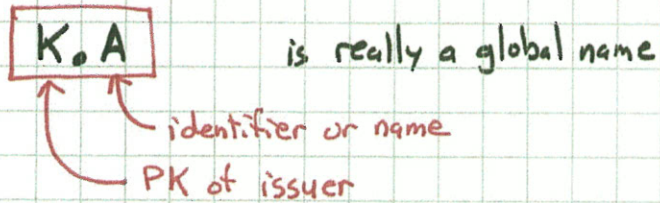 K.A is really a global name
identifier or name
PK of issuer